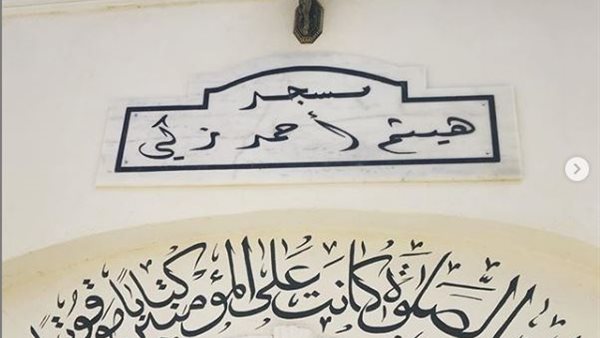 مسجد
هيثم أحمد زكي
الصَّلَوٰةَ كَانَتْ عَلَى الْمُؤْمِنِينَ كِتَابًا مَّوْقُوتًا